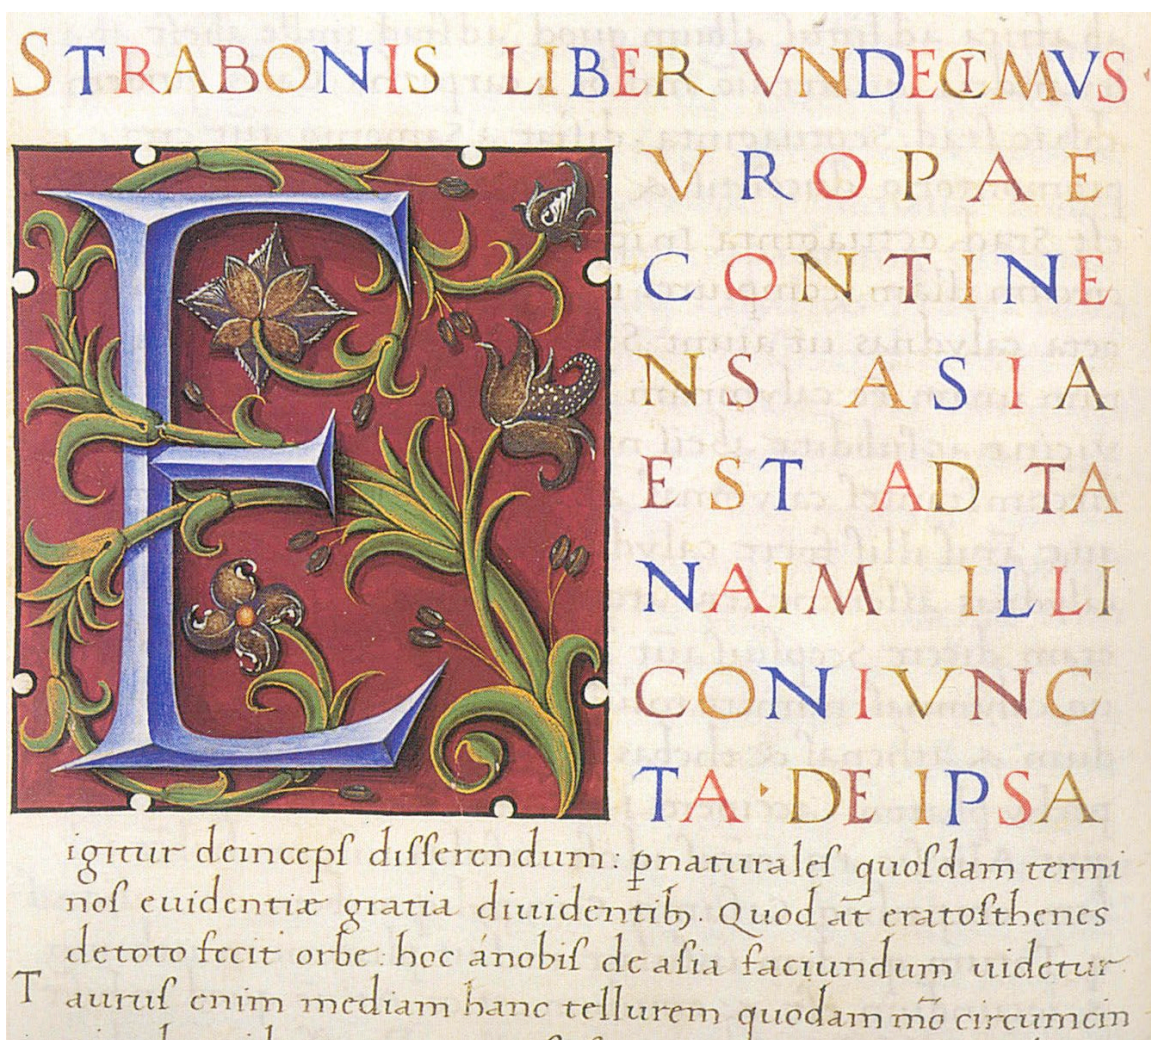 STRABONIS LIBER VNDECIMVS
E
VROPAE
CONTINE
NS ASIA
EST AD TA
NAIM ILLI
CONIVNC
TA · DE IPSA
igitur deincepſ diſſerendum: ꝑnaturaleſ quoſdam termi
noſ euidentiæ gratia diuidentibꝫ. Quod at̄ eratoſthenes
detoto fecit orbe: hoc ánobiſ de aſia faciundum uidetur.
T auruſ enim mediam hanc tellurem quodam mo᷈ circumcin